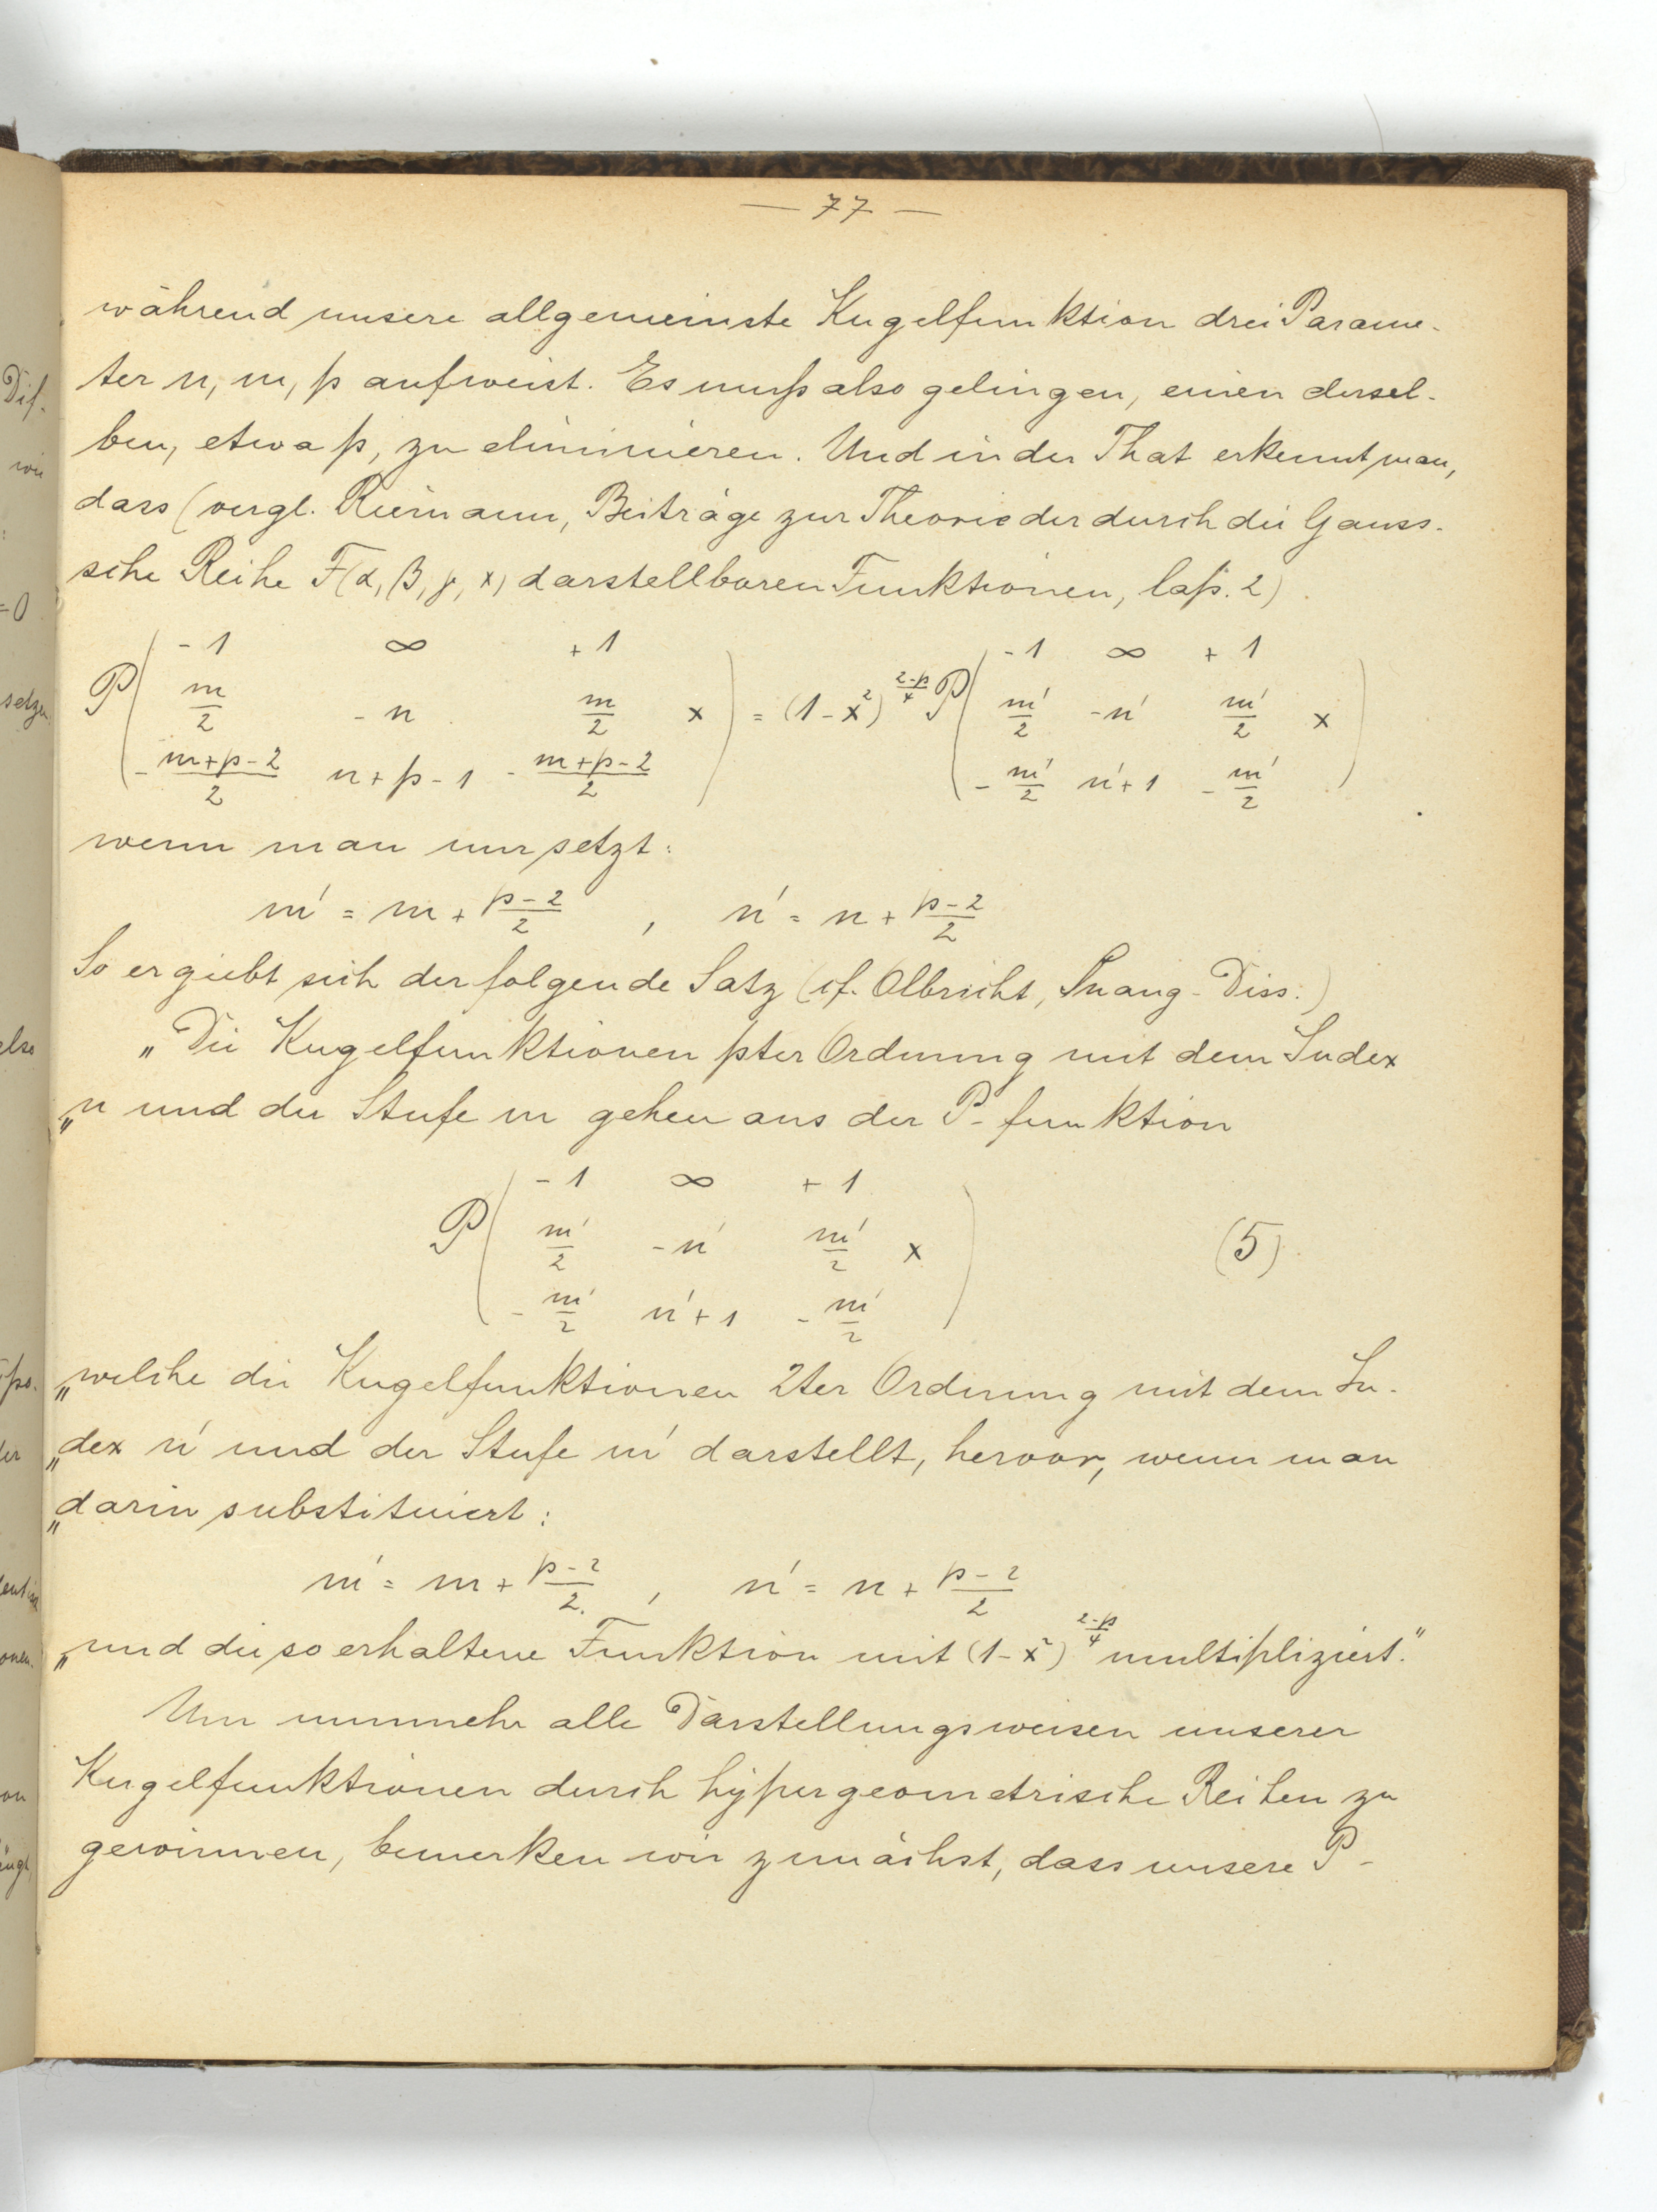 — 77 —
während unsere allgemeinste Kugelfunktion drei Parame-
ter n, m, p aufweist. Es muß also gelingen, einen dersel-
ben, etwa p, zu eliminieren. Und in der That erkennt man,
dass (vergl. Riemann, Beiträge zur Theorie der durch die Gauss-
sche Reihe F(α, β, γ, x) darstellbaren Funktionen, Cap. 2)
P( -1 ∞ +1
m/2 -n m/2 x ) = (1-x²)^{(2-p)/4} P( -1 ∞ +1
m'/2 -n' m'/2 x
-(m+p-2)/2 n+p-1 -(m+p-2)/2
-m'/2 n'+1 -m'/2 )
wenn man nur setzt:
m' = m + (p-2)/2 , n' = n + (p-2)/2
So ergiebt sich der folgende Satz (cf. Olbricht, Inaug-Diss.)
„Die Kugelfunktionen pter Ordnung mit dem Index
„n und der Stufe m gehen aus der P-funktion
P( -1 ∞ +1
m'/2 -n' m'/2 x ) (5)
-m'/2 n'+1 -m'/2
„welche die Kugelfunktionen 2ter Ordnung mit dem In-
„dex n' und der Stufe m' darstellt, hervor, wenn man
„darin substituiert:
m' = m + (p-2)/2 , n' = n + (p-2)/2
„und die so erhaltene Funktion mit (1-x²)^{(2-p)/4} multipliziert."
Um nunmehr alle Darstellungsweisen unserer
Kugelfunktionen durch hypergeometrische Reihen zu
gewinnen, bemerken wir zunächst, dass unsere P-
Dif-
wie
=0
setzen
also
der